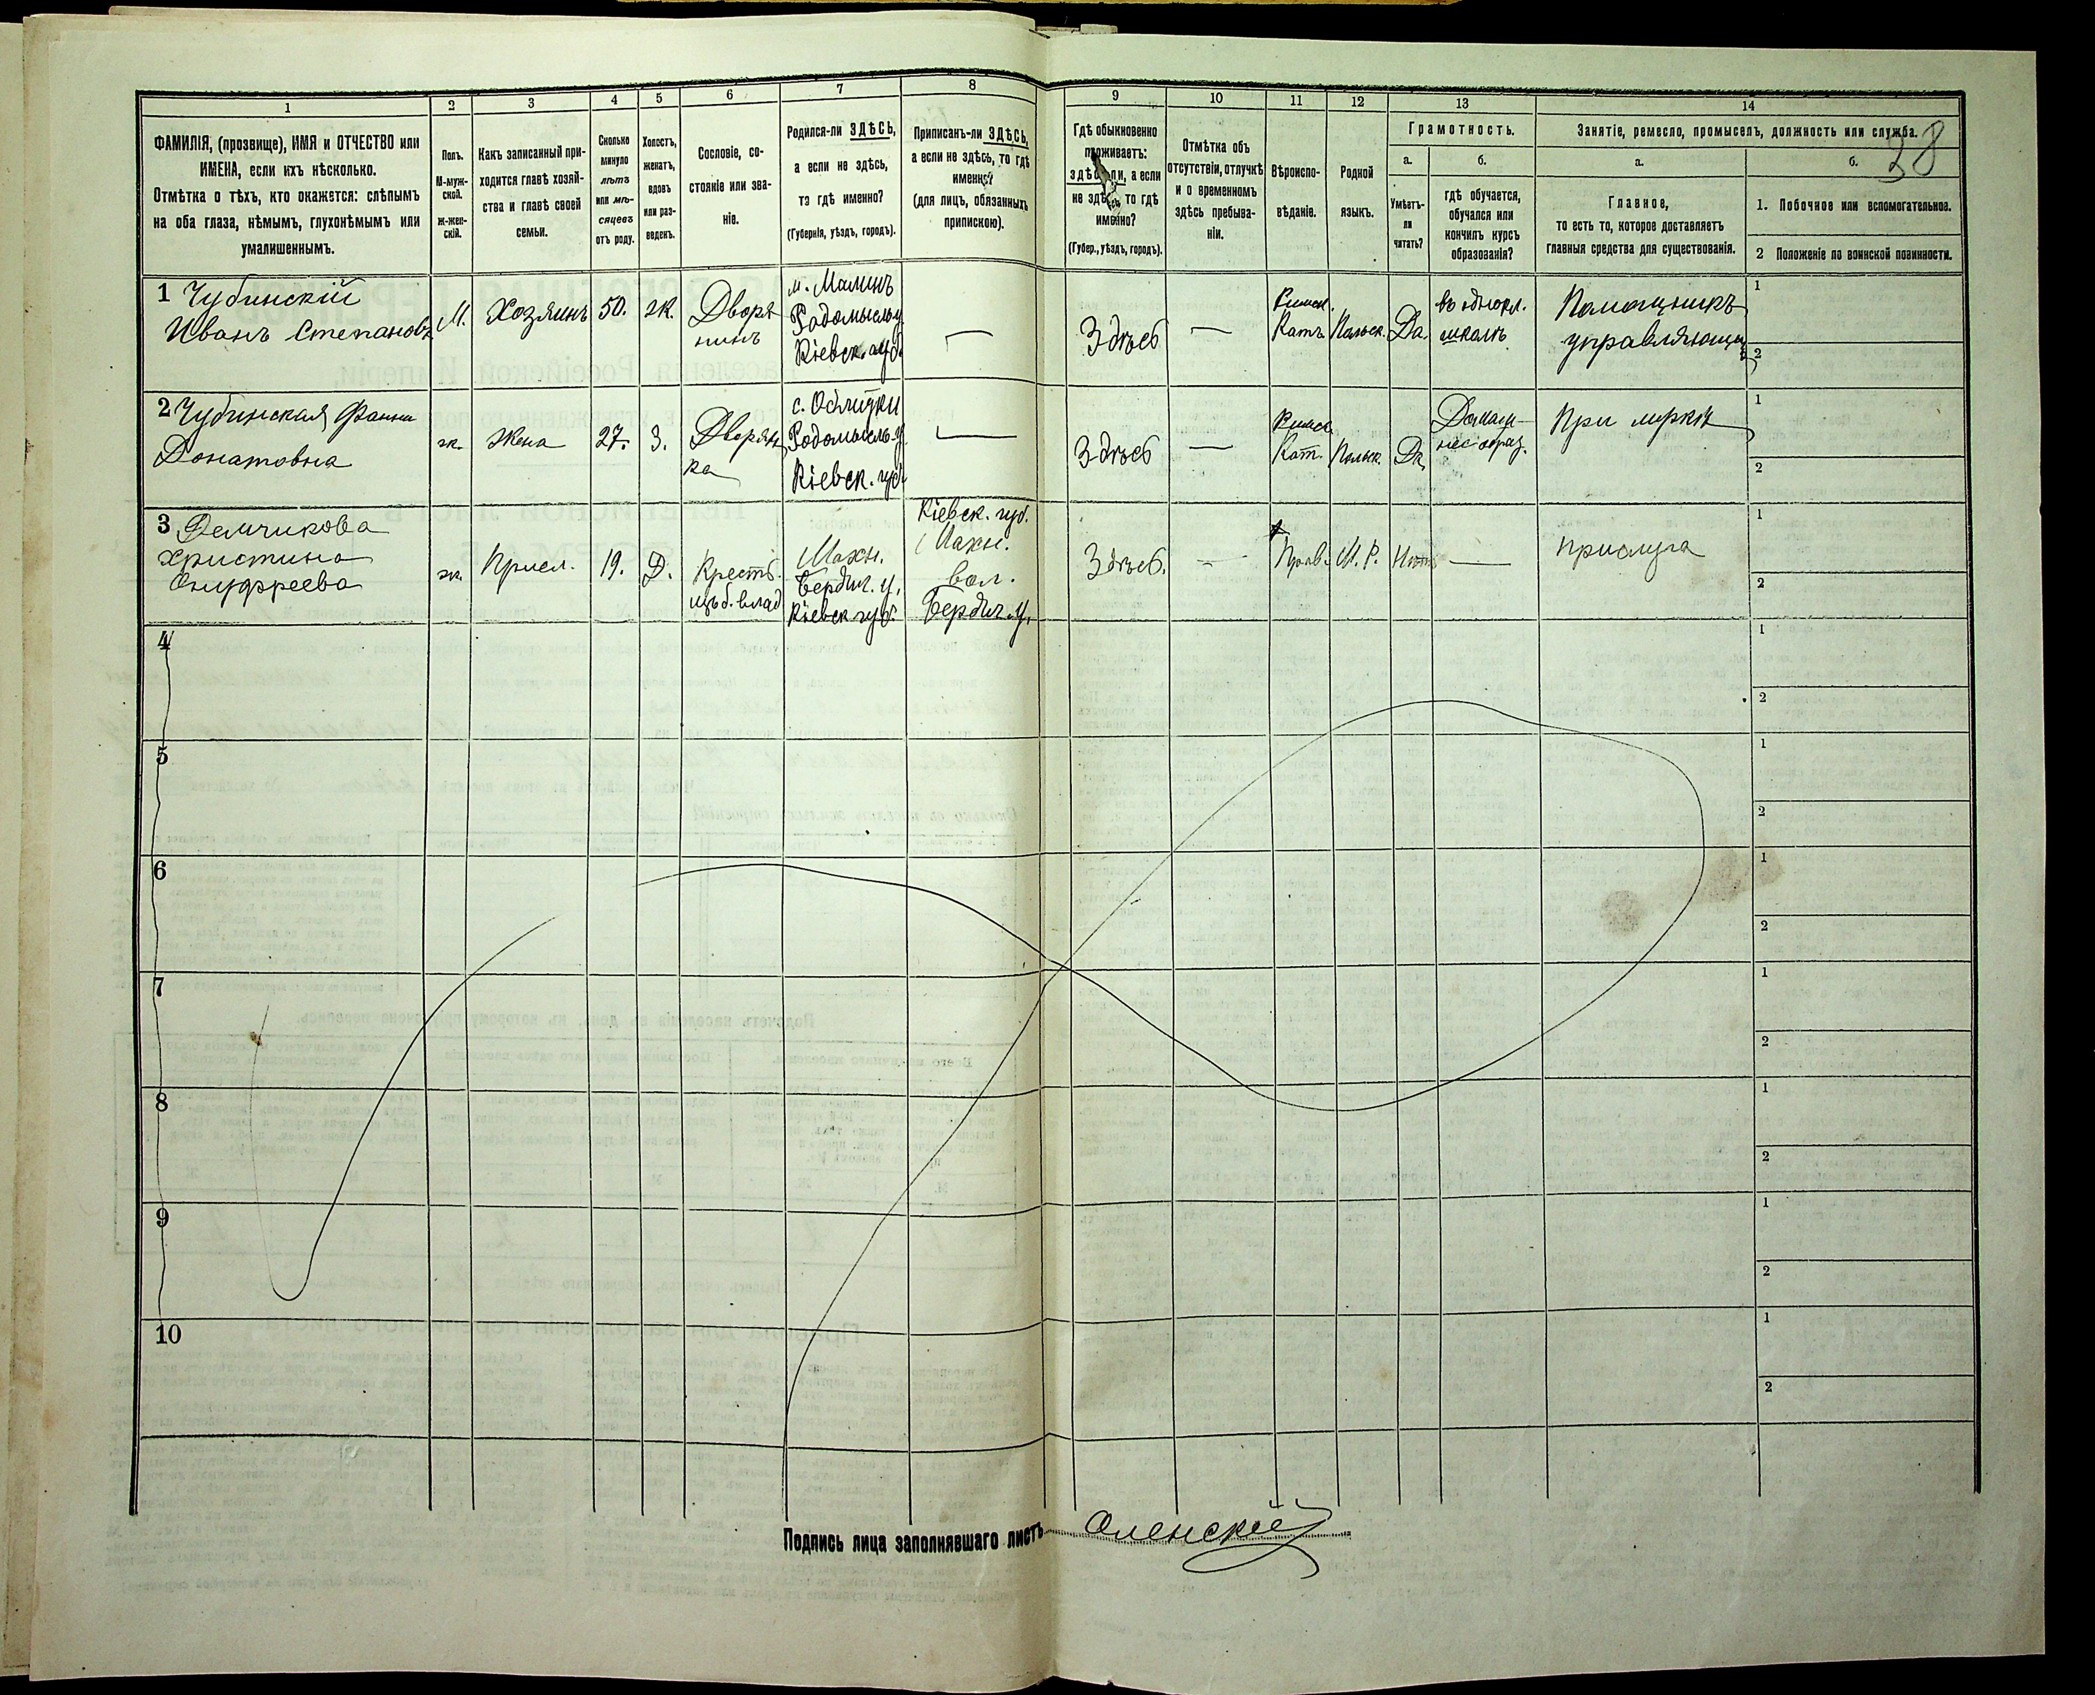 1 2 3 4 5 6 7 8 9 10 11 12 13 14
ФАМИЛІЯ, (прозвище), ИМЯ и ОТЧЕСТВО или
ИМЕНА, если ихъ нѣсколько.
Отмѣтка о тѣхъ, кто окажется: слѣпымъ
на оба глаза, нѣмымъ, глухонѣмымъ или
умалишеннымъ.
Полъ.
М-муж-
ской.
ж-жен-
скій.
Какъ записанный при-
ходится главѣ хозяй-
ства и главѣ своей
семьи.
Сколько
минуло
лѣтъ
или мѣ-
сяцевъ
отъ роду.
Холостъ,
женатъ,
вдовъ
или раз-
веденъ.
Сословіе, со-
стояніе или зва-
ніе.
Родился-ли ЗДѢСЬ,
а если не здѣсь,
то гдѣ именно?
(Губернія, уѣздъ, городъ).
Приписанъ-ли ЗДѢСЬ,
а если не здѣсь, то гдѣ
именно?
(для лицъ, обязанныхъ
припискою).
Гдѣ обыкновенно
проживаетъ:
здѣсь-ли, а если
не здѣсь, то гдѣ
именно?
(Губер., уѣздъ, городъ).
Отмѣтка объ
отсутствіи, отлучкѣ
и о временномъ
здѣсь пребыва-
ніи.
Вѣроиспо-
вѣданіе.
Родной
языкъ.
Грамотность.
а.
Умѣетъ-
ли
читать?
б.
гдѣ обучается,
обучался или
кончилъ курсъ
образованія?
Занятіе, ремесло, промыселъ, должность или служба.
38
а.
Главное,
то есть то, которое доставляетъ
главныя средства для существованія.
б.
1. Побочное или вспомогательное.
2 Положеніе по воинской повинности.
1 Чубинскій
Иванъ Степановъ
М.
Хозяинъ
50.
ж.
Дворя-
нинъ
м. Малинъ
Радомысль. у.
Кіевск. губ.
—
Здѣсь
—
Римск.
Катъ.
Польск.
Да.
школѣ
Помощникъ
управляющ
1
2
2 Чубинская Фанни
Донатовна
ж.
Жена
27.
З.
Дворян
ка
Радомысль. у.
Кіевск. губ.
—
Здѣсь
—
Римск
Кат.
Польск.
Да
Домаш-
нее образ.
При мужѣ
1
2
3 Демчикова
Христина
Онуфреева
ж.
Присл.
19.
Д.
Крест.
изъ б. влад
Махн.
Бердич. у.
Кіевск. губ.
Кіевск. губ.
Махн.
вол.
Бердич. у.
Здѣсь.
—
Прав.
М. Р.
Нѣтъ
—
прислуга
1
2
4
1
2
5
1
2
6
1
2
7
1
2
8
1
2
9
1
2
10
1
2
Подпись лица заполнявшаго листъ Оленскій